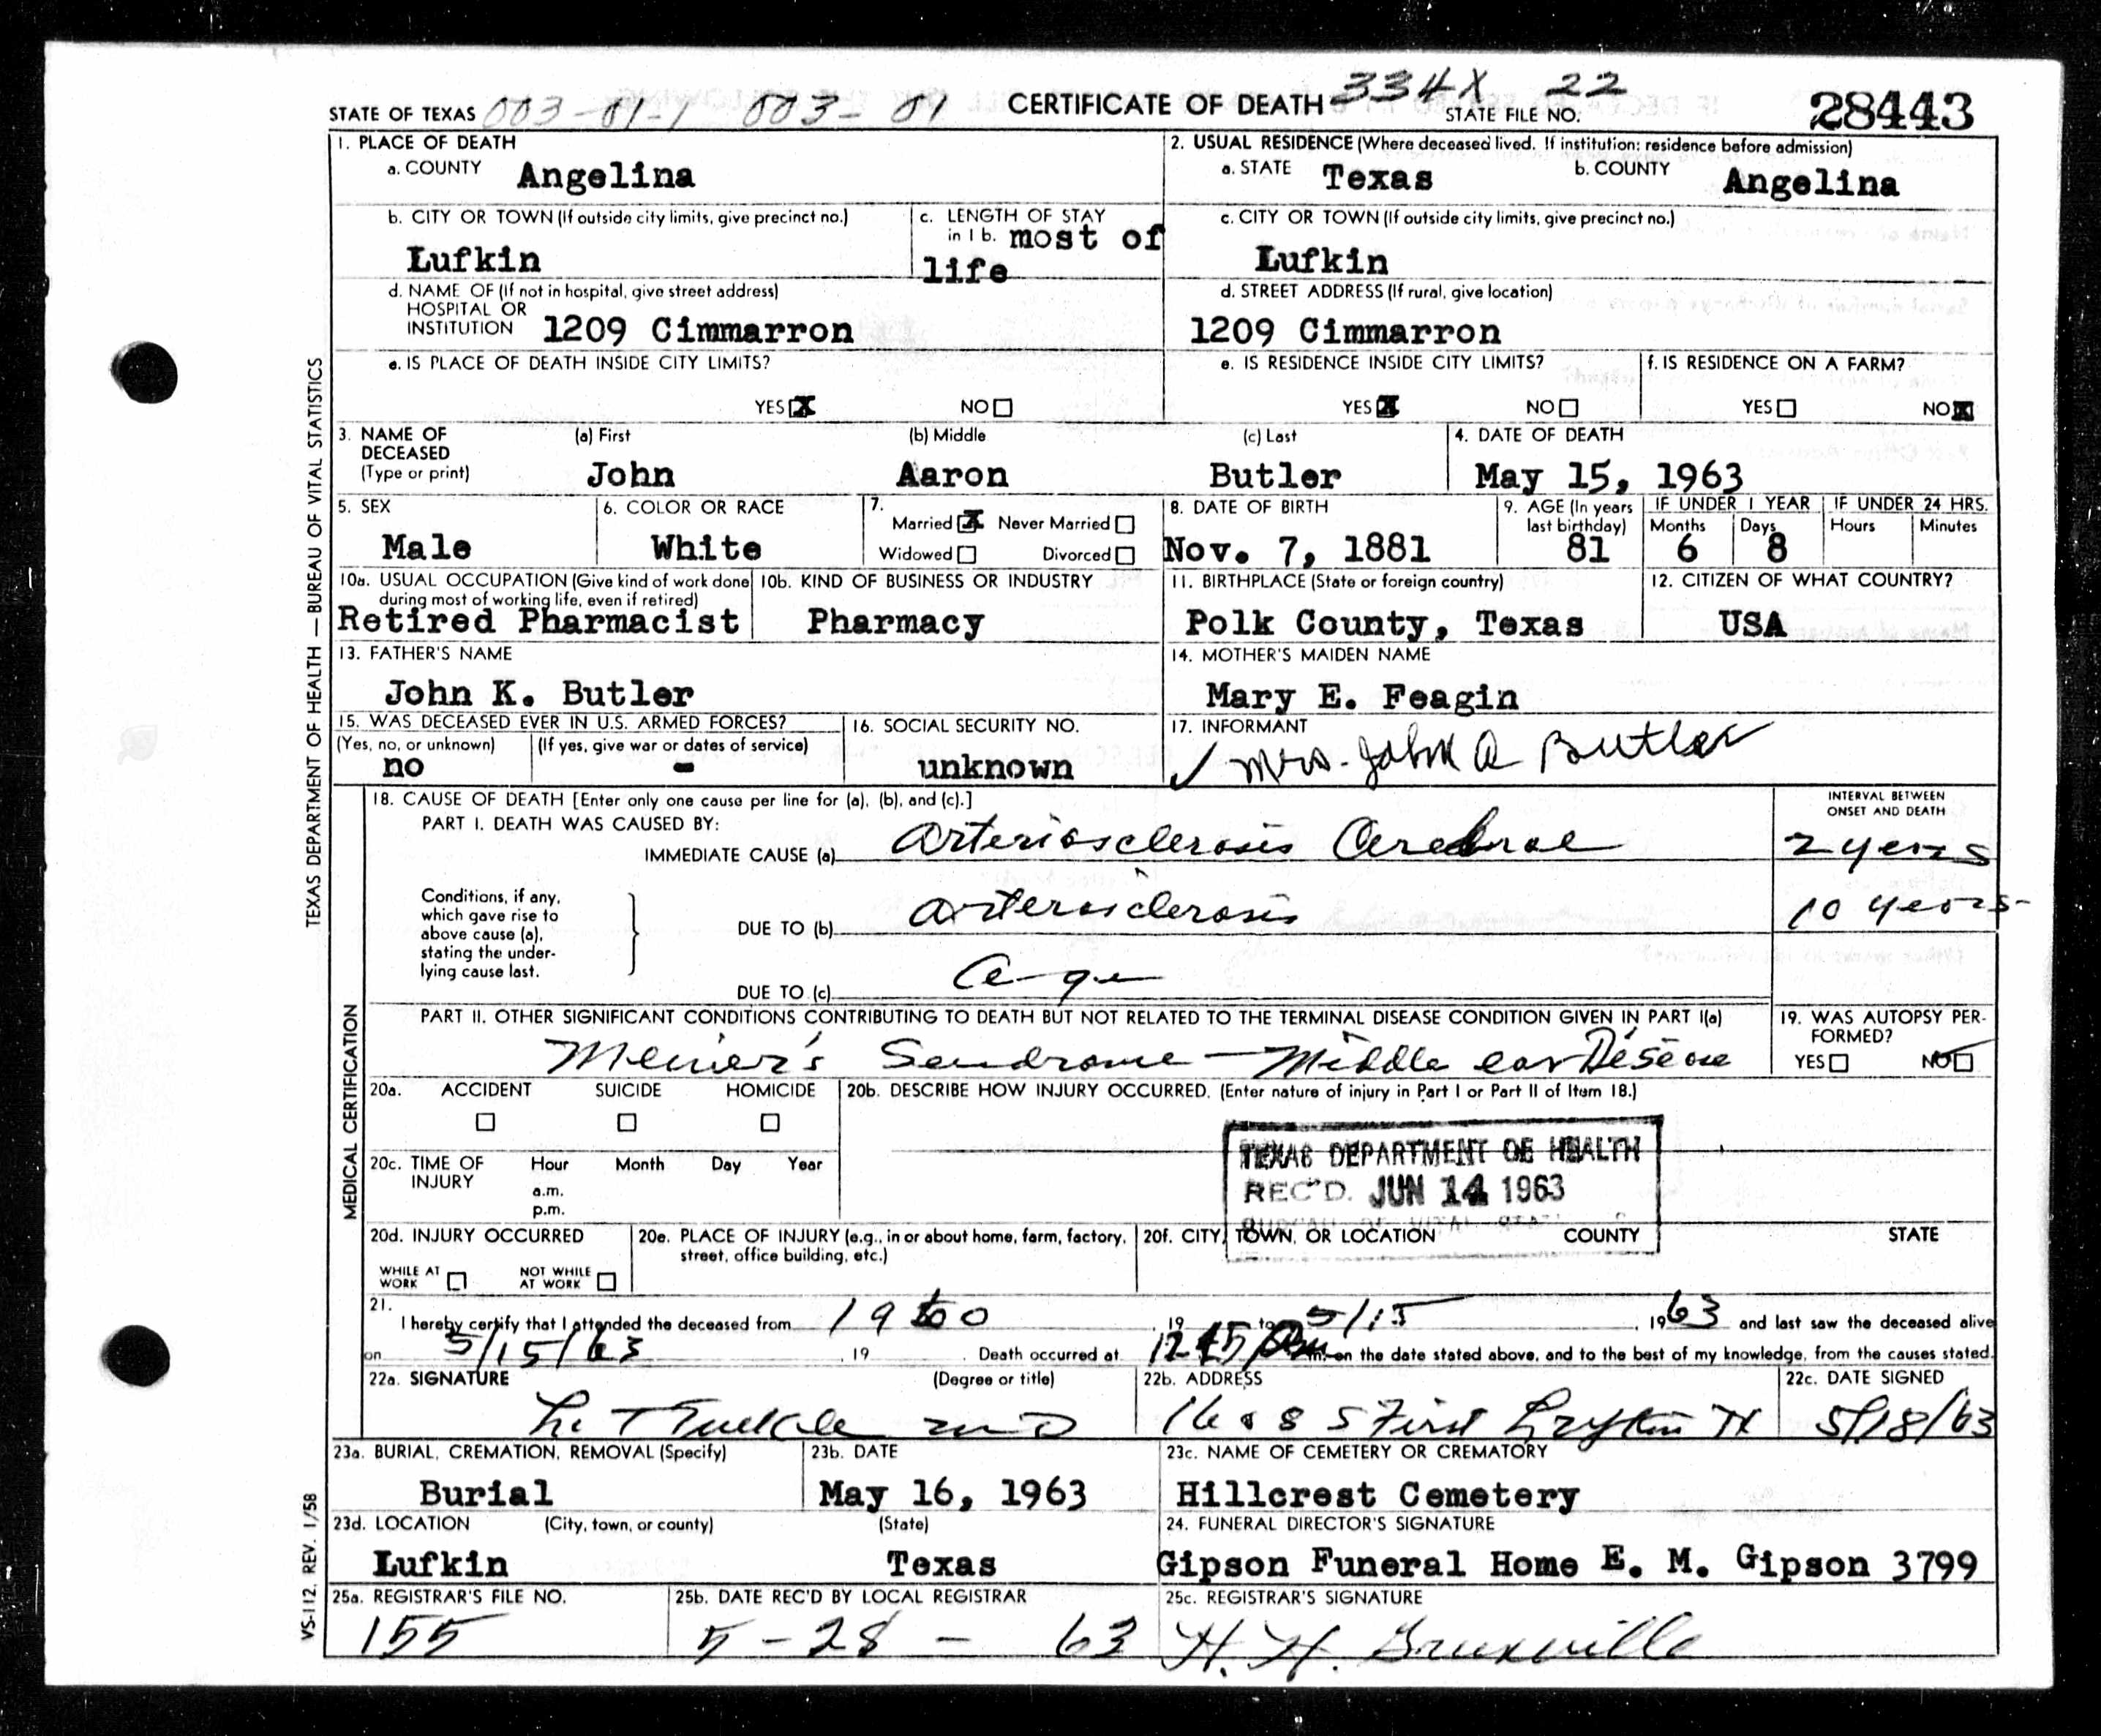 STATE OF TEXAS 003-01-1 003-01 CERTIFICATE OF DEATH 334X 22 STATE FILE NO. 28443
1. PLACE OF DEATH
a. COUNTY Angelina
2. USUAL RESIDENCE (Where deceased lived. If institution: residence before admission)
a. STATE Texas b. COUNTY Angelina
b. CITY OR TOWN (If outside city limits, give precinct no.)
Lufkin
c. LENGTH OF STAY
in 1 b. most of
life
c. CITY OR TOWN (If outside city limits, give precinct no.)
Lufkin
d. NAME OF (If not in hospital, give street address)
HOSPITAL OR
INSTITUTION 1209 Cimmarron
d. STREET ADDRESS (If rural, give location)
1209 Cimmarron
e. IS PLACE OF DEATH INSIDE CITY LIMITS?
YES X NO
e. IS RESIDENCE INSIDE CITY LIMITS?
YES X NO
f. IS RESIDENCE ON A FARM?
YES NO X
3. NAME OF DECEASED (Type or print)
(a) First (b) Middle (c) Last
John Aaron Butler
4. DATE OF DEATH
May 15, 1963
5. SEX
Male
6. COLOR OR RACE
White
7.
Married X Never Married
Widowed Divorced
8. DATE OF BIRTH
Nov. 7, 1881
9. AGE (In years last birthday)
81
IF UNDER 1 YEAR
Months Days
6 8
IF UNDER 24 HRS.
Hours Minutes
10a. USUAL OCCUPATION (Give kind of work done
during most of working life, even if retired)
Retired Pharmacist
10b. KIND OF BUSINESS OR INDUSTRY
Pharmacy
11. BIRTHPLACE (State or foreign country)
Polk County, Texas
12. CITIZEN OF WHAT COUNTRY?
USA
13. FATHER'S NAME
John K. Butler
14. MOTHER'S MAIDEN NAME
Mary E. Feagin
15. WAS DECEASED EVER IN U.S. ARMED FORCES?
(Yes, no, or unknown) (If yes, give war or dates of service)
no -
16. SOCIAL SECURITY NO.
unknown
17. INFORMANT
Mrs. John A Butler
18. CAUSE OF DEATH [Enter only one cause per line for (a), (b), and (c).]
INTERVAL BETWEEN
ONSET AND DEATH
PART I. DEATH WAS CAUSED BY:
IMMEDIATE CAUSE (a) Arteriosclerosis Cerebral 2 years
Conditions, if any,
which gave rise to
above cause (a),
stating the under-
lying cause last.
DUE TO (b) arterosclerosis 10 years
DUE TO (c) age
PART II. OTHER SIGNIFICANT CONDITIONS CONTRIBUTING TO DEATH BUT NOT RELATED TO THE TERMINAL DISEASE CONDITION GIVEN IN PART I(a)
Menier's Sendrome - Middle ear Disease
19. WAS AUTOPSY PER-
FORMED?
YES NO
20a. ACCIDENT SUICIDE HOMICIDE
20b. DESCRIBE HOW INJURY OCCURRED. (Enter nature of injury in Part I or Part II of Item 18.)
20c. TIME OF INJURY
Hour Month Day Year
a.m.
p.m.
TEXAS DEPARTMENT OF HEALTH
REC'D. JUN 14 1963
20d. INJURY OCCURRED
WHILE AT WORK NOT WHILE AT WORK
20e. PLACE OF INJURY (e.g., in or about home, farm, factory,
street, office building, etc.)
20f. CITY, TOWN, OR LOCATION COUNTY STATE
21.
I hereby certify that I attended the deceased from 1960, 19 to 5/15, 1963 and last saw the deceased alive
on 5/15/63, 19 . Death occurred at m. on the date stated above, and to the best of my knowledge, from the causes stated.
22a. SIGNATURE (Degree or title)
MD
22b. ADDRESS
S First Lufkin TX
22c. DATE SIGNED
5/18/63
23a. BURIAL, CREMATION, REMOVAL (Specify)
Burial
23b. DATE
May 16, 1963
23c. NAME OF CEMETERY OR CREMATORY
Hillcrest Cemetery
23d. LOCATION (City, town, or county) (State)
Lufkin Texas
24. FUNERAL DIRECTOR'S SIGNATURE
Gipson Funeral Home E. M. Gipson 3799
25a. REGISTRAR'S FILE NO.
155
25b. DATE REC'D BY LOCAL REGISTRAR
5-28-63
25c. REGISTRAR'S SIGNATURE
H. H.
TEXAS DEPARTMENT OF HEALTH — BUREAU OF VITAL STATISTICS
MEDICAL CERTIFICATION
VS-112. REV. 1/58